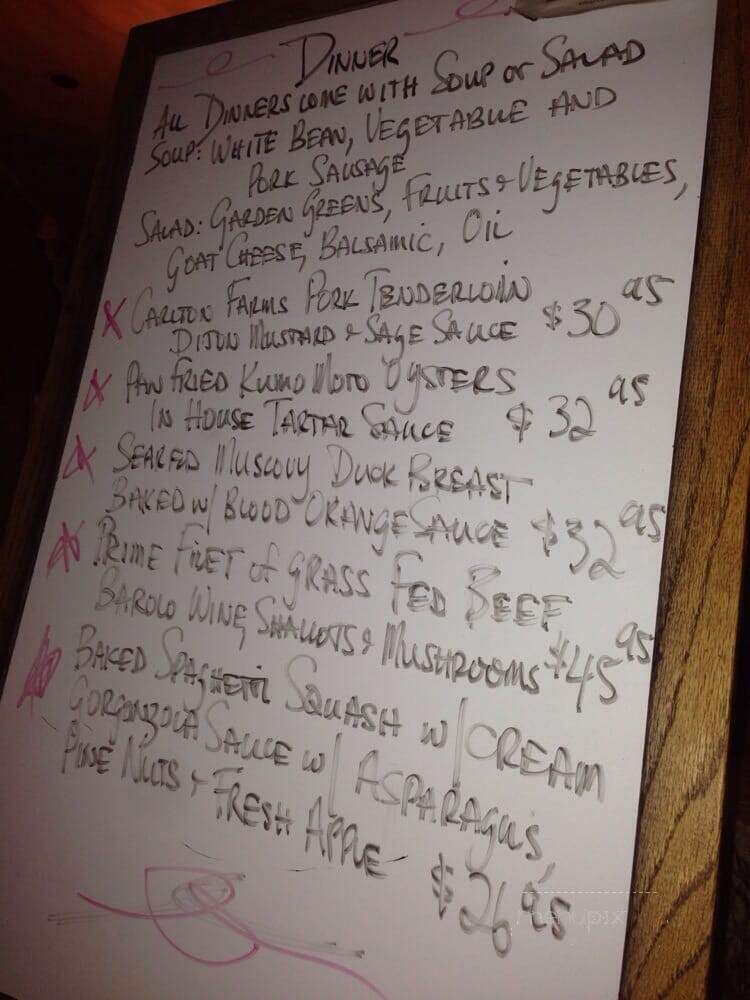 DINNER
ALL DINNERS COME WITH SOUP or SALAD
SOUP: WHITE BEAN, VEGETABLE AND
PORK SAUSAGE
SALAD: GARDEN GREENS, FRUITS & VEGETABLES,
GOAT CHEESE, BALSAMIC, OIL
X CARLTON FARMS PORK TENDERLOIN
DIJON MUSTARD & SAGE SAUCE $30 95
PAN FRIED KUMO MOTO OYSTERS
IN HOUSE TARTAR SAUCE $32 95
SEARED MUSCOVY DUCK BREAST
BAKED W/ BLOOD ORANGE SAUCE $32 95
PRIME FILET of GRASS FED BEEF
BAROLO WINE, SHALLOTS & MUSHROOMS $45 95
BAKED SPAGHETTI SQUASH W/ CREAM
GORGONZOLA SAUCE W/ ASPARAGUS,
PINE NUTS & FRESH APPLE $26 95
menupix